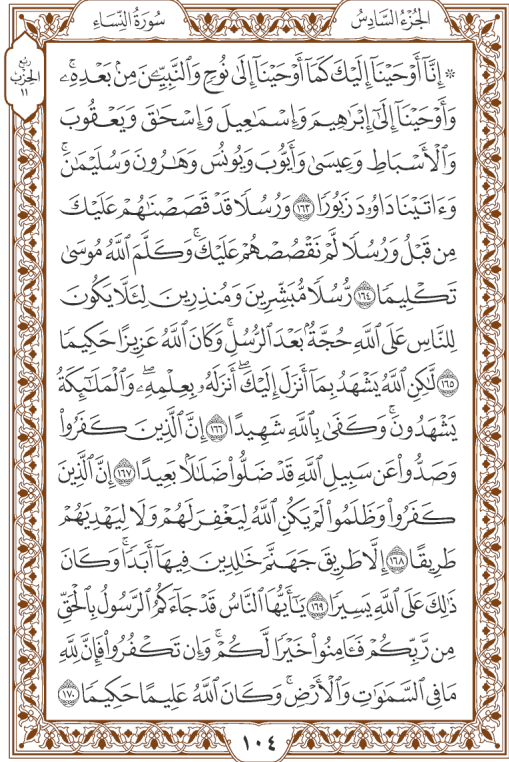 الجُزْءُ السَّادِسُ
سُورَةُ النِّسَاءِ
رُبع
الحِزْب
١١
۞ إِنَّآ أَوۡحَيۡنَآ إِلَيۡكَ كَمَآ أَوۡحَيۡنَآ إِلَىٰ نُوحٖ وَٱلنَّبِيِّـۧنَ مِنۢ بَعۡدِهِۦۚ
وَأَوۡحَيۡنَآ إِلَىٰٓ إِبۡرَٰهِيمَ وَإِسۡمَٰعِيلَ وَإِسۡحَٰقَ وَيَعۡقُوبَ
وَٱلۡأَسۡبَاطِ وَعِيسَىٰ وَأَيُّوبَ وَيُونُسَ وَهَٰرُونَ وَسُلَيۡمَٰنَۚ
وَءَاتَيۡنَا دَاوُۥدَ زَبُورٗا ١٦٣ وَرُسُلٗا قَدۡ قَصَصۡنَٰهُمۡ عَلَيۡكَ
مِن قَبۡلُ وَرُسُلٗا لَّمۡ نَقۡصُصۡهُمۡ عَلَيۡكَۚ وَكَلَّمَ ٱللَّهُ مُوسَىٰ
تَكۡلِيمٗا ١٦٤ رُّسُلٗا مُّبَشِّرِينَ وَمُنذِرِينَ لِئَلَّا يَكُونَ
لِلنَّاسِ عَلَى ٱللَّهِ حُجَّةُۢ بَعۡدَ ٱلرُّسُلِۚ وَكَانَ ٱللَّهُ عَزِيزًا حَكِيمٗا
١٦٥ لَّٰكِنِ ٱللَّهُ يَشۡهَدُ بِمَآ أَنزَلَ إِلَيۡكَۖ أَنزَلَهُۥ بِعِلۡمِهِۦۖ وَٱلۡمَلَٰٓئِكَةُ
يَشۡهَدُونَۚ وَكَفَىٰ بِٱللَّهِ شَهِيدًا ١٦٦ إِنَّ ٱلَّذِينَ كَفَرُواْ
وَصَدُّواْ عَن سَبِيلِ ٱللَّهِ قَدۡ ضَلُّواْ ضَلَٰلَۢا بَعِيدًا ١٦٧ إِنَّ ٱلَّذِينَ
كَفَرُواْ وَظَلَمُواْ لَمۡ يَكُنِ ٱللَّهُ لِيَغۡفِرَ لَهُمۡ وَلَا لِيَهۡدِيَهُمۡ
طَرِيقًا ١٦٨ إِلَّا طَرِيقَ جَهَنَّمَ خَٰلِدِينَ فِيهَآ أَبَدٗاۚ وَكَانَ
ذَٰلِكَ عَلَى ٱللَّهِ يَسِيرٗا ١٦٩ يَٰٓأَيُّهَا ٱلنَّاسُ قَدۡ جَآءَكُمُ ٱلرَّسُولُ بِٱلۡحَقِّ
مِن رَّبِّكُمۡ فَـَٔامِنُواْ خَيۡرٗا لَّكُمۡۚ وَإِن تَكۡفُرُواْ فَإِنَّ لِلَّهِ
مَا فِي ٱلسَّمَٰوَٰتِ وَٱلۡأَرۡضِۚ وَكَانَ ٱللَّهُ عَلِيمًا حَكِيمٗا ١٧٠
١٠٤